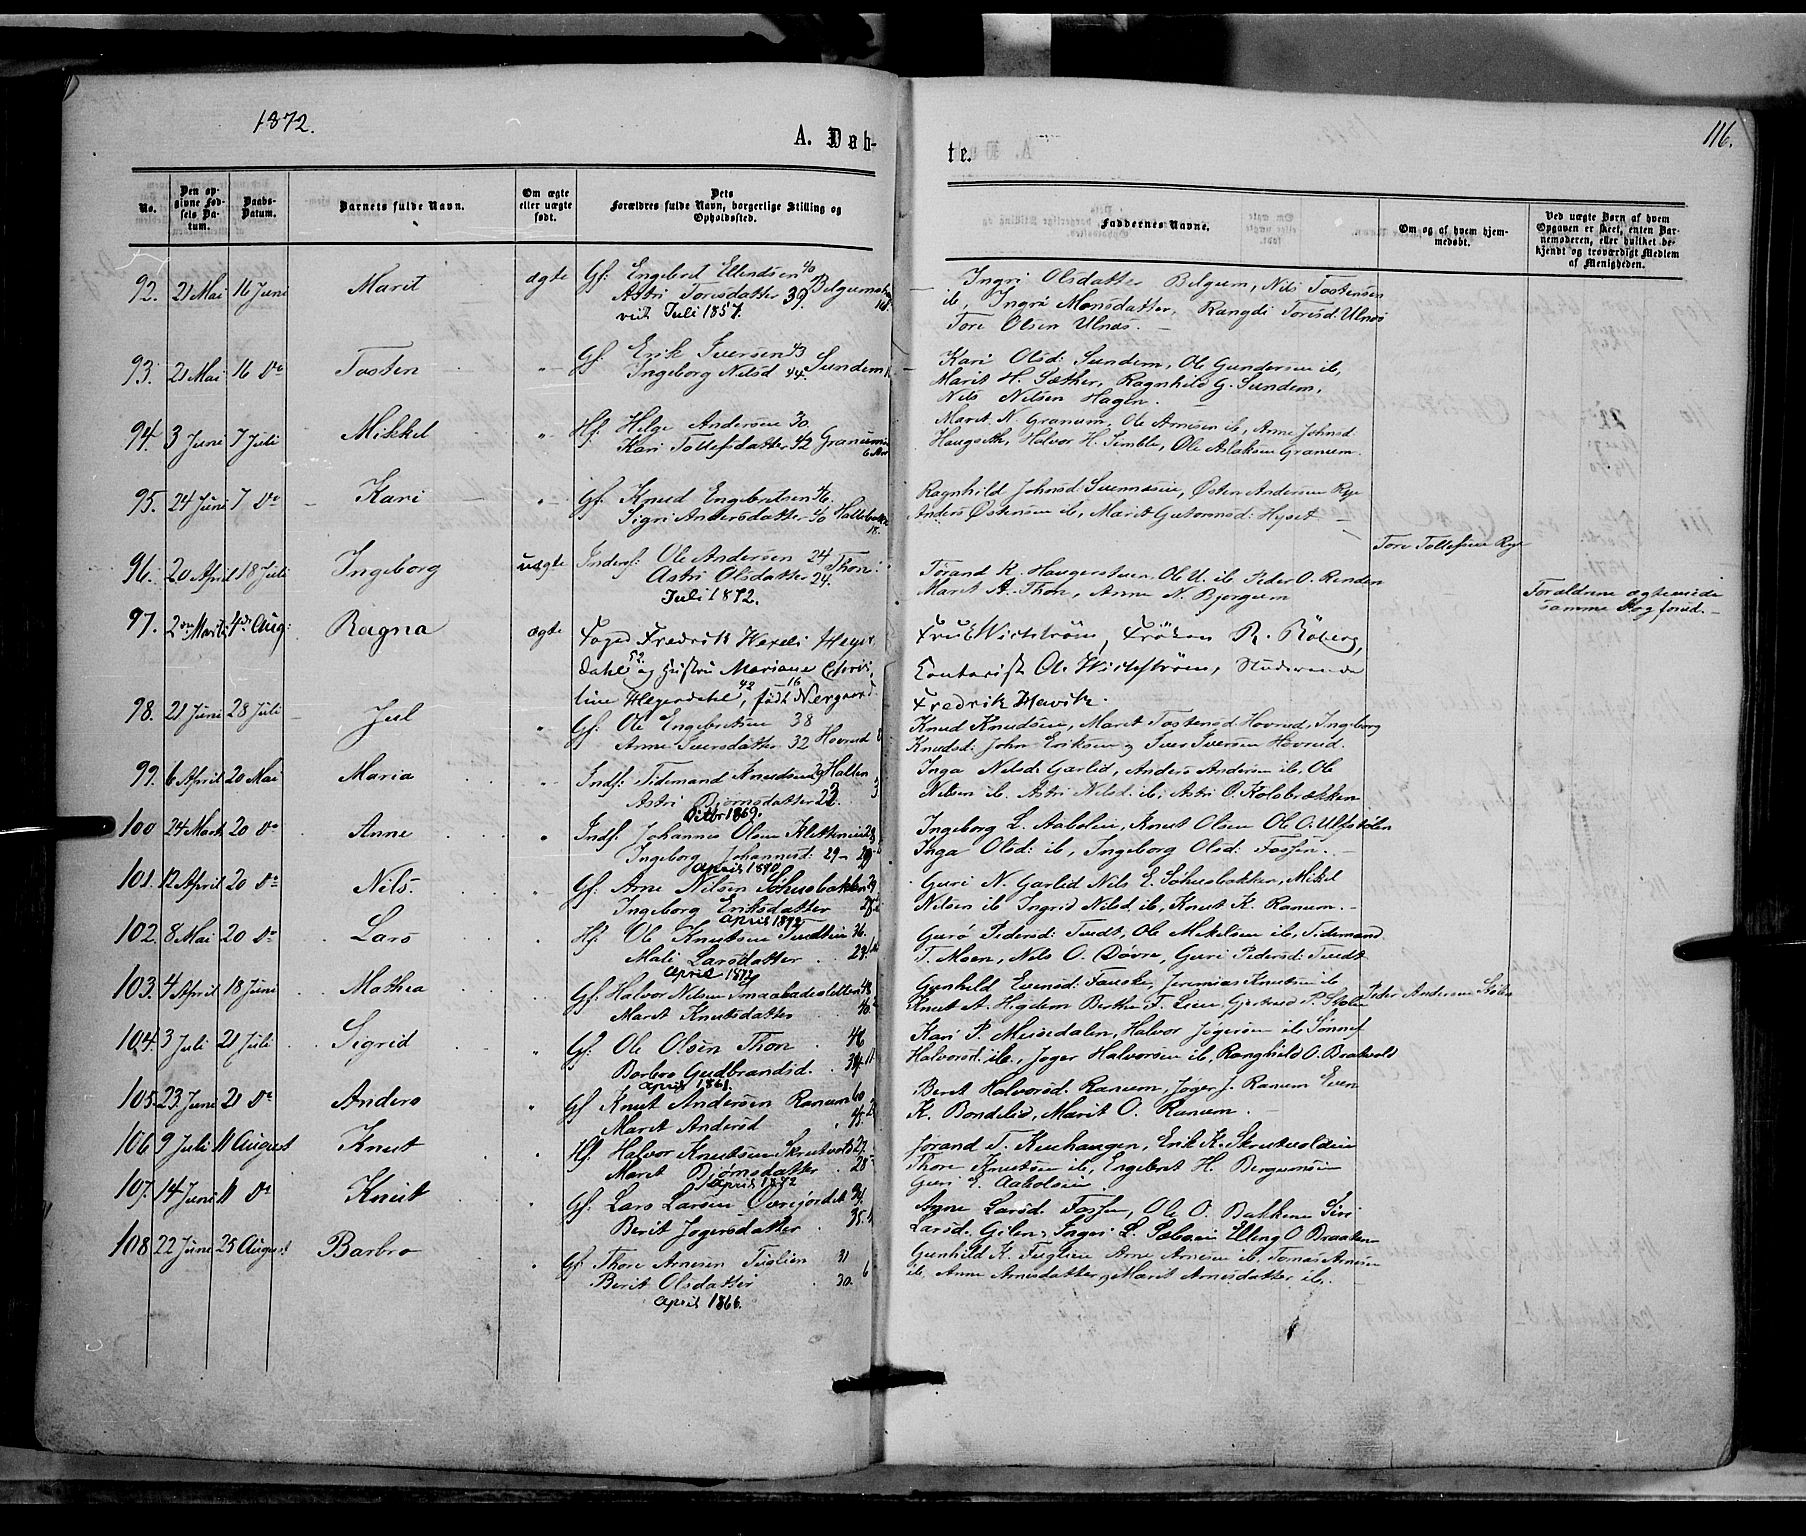 1872.
116.
A. Døb-
te.
No.
Den op-
givne Fød-
sels Da-
tum.
Daabs-
Datum.
Barnets fulde Navn.
Om ægte
eller uægte
født.
Dets
Forældres fulde Navn, borgerlige Stilling og
Opholdssted.
Faddernes Navne.
Om og af hvem hjem-
medøbt.
Ved uægte Børn af hvem
Opgaven er skeet, enten Bar-
nemoderen, eller hvilket be-
kjendt og troværdigt Medlem
af Menigheden.
92. 21 Mai 16 Juni Marit ægte Gf: Engebret Ellendsen 40
Astri Toresdatter 39
viet Juli 1857.
Ingri Olsdatter Belgum, Nils Tostensen
ib, Ingri Monsdatter, Rangdi Toresd: Ulnes
Tore Olsen Ulnæs. —
93. 21 Mai 16 Do Tosten " Gf: Erik Iversen 43
Ingeborg Nilsd 44. Sundem
Kari Olsd: Sundem, Ole Gundersen ib,
Marit H. Sæther, Ragnhild G. Sundem,
Nils Nilsen Hagen.
94. 3 Juni 7 Juli Mikkel " Hf: Helge Andersen 30.
Kari Tollefsdatter 42 Granum
Marit N. Granum, Ole Arnesen ib, Anne Johnsd:
Haugseth, Halvor H. Semble, Ole Aslaksen Granum.
95. 24 Juni 7 Do Kari " Gf: Knud Engebretsen 46.
Sigri Andersdatter 40
Ragnhild Johnsd: Østen Andersen Rye
Anders Østensen ib, Marit Guttormsd: Hyset
96. 20 April 18 Juli Ingeborg uægte Inders: Ole Andersen 24 Thon
Astri Olsdatter 24.
Juli 1872.
Tørand K. Haugerstuen, Ole U. ib, Peder O. Renden
Marit A. Thon, Anne N. Bjørgum
Tore Tollefsen Rye
Forældrene ægteviede
samme Dag forud. —
97. 2den Marts 4de Aug: Ragna ægte Foged Fredrik Wexels Heyer
dahl 52 og Hustru Mariane Chris
tine Heyerdahl 42, født Nergaard
Fru Wichstrøm, Frøken R. Röberg,
Contorist Ole Wichstrøm, Studerende
Fredrik
98. 21 Juni 28 Juli Jul " Gf: Ole Engebretsen 38
Anne Iversdatter 32 Hovrud
Knud Knudsen, Marit Tostensd. Hovrud, Ingeborg
Knudsd: John Eriksen og Iver Iversen Hovrud.
99. 6 April 20 Mai Maria " Indf: Tidemand Knudsen 29 Halten
Astri Bjørnsdatter 22.
1869.
Inga Nilsd: Garlid, Anders Andersen ib, Ole
Nilsen ib. Astri Nilsd ib, Astri O. Kolsbrækken
100 24 Marts 20 Do Anne " Indf: Johannes Olsen 28
Ingeborg Johannesd: 29 —
April 1870
Ingeborg L. Aabølen, Knut Olsen Ole O. Ulfstølen
Inga Olsd: ib, Ingeborg Olsd: Fossen. —
101. 12 April 20 Do Nils. Gf: Arne Nilsen Søhusbakken 29
Ingeborg Eriksdatter
April 1872
Guri N. Garlid Nils E. Søhusbakken, Mikel
Nilsen ib Ingrid Nilsd ib, Knut K. Ranum. —
102. 8 Mai 20 Do Lars " Hf: Ole Knutsen Tuvdtein 36.
Mali Larsdatter . . 29
April 1872
Guro Pedersd: Tuvdt, Ole Mikelsen ib, Tidemand
T. Moen, Nils O. Døvre, Guri Pedersd: Tuvdt
103. 4 April 18 Juni Mathea " Gf: Halvor Nilsen Smaabadesletten 48
Marit Knutsdatter 40
Gunhild Evensd: Fauske, Jeremias Knutsen ib
Knut A. Høgdem Berthe F. Lien, Gjertrud P. Stølen
Peder Andersen Stølen
104. 3 Juli 21 Juli Sigrid " Gf: Ole Olsen Thon . 46
Barbro Gudbrandsd. . 39
april 1861.
Kari P. Musedalen, Halvor Jøgersen ib, Sønnef
Halvorsd: ib., Jøger Halvorsen ib, Ranghild O. Brakvold
105. 23 Juni 21 Do Anders " Gf: Knut Andersen Ranum 60
Marit Andersd 45.
Berit Halvorsd. Ranum, Jøger J. Ranum Even
K. Bondelid, Marit O. Ranum.
106 9 Juli 11 August Knut " Hf: Halvor Knutsen Skrutvold 27.
Marit Bjørnsdatter . 28
April 1872
Jorand T. Kinhaugen, Erik K. Skrutvolden
Thore Knutsen ib, Engebret H. Bergumsen
Guri E. Aabølen.
107. 14 Juni 11 Do Knut " Gf: Lars Larsen Øvrejordet
Berit Jøgersdatter . 35
Anne Larsd. Fossen, Ole O. Bakkene Siri
Larsd. Gilen, Inger L. Sæbøein Elling O Braaten
108 22 Juni 25 August Barbro " Gf: Thore Arnesen Fuglien 31
Berit Olsdatter . 30. 6
April 1866.
Gunhild K. Fuglien Arne Arnesen ib, Tomas Arnesen
ib, Anne Arnesdatter og Marit Arnesdatter ib.